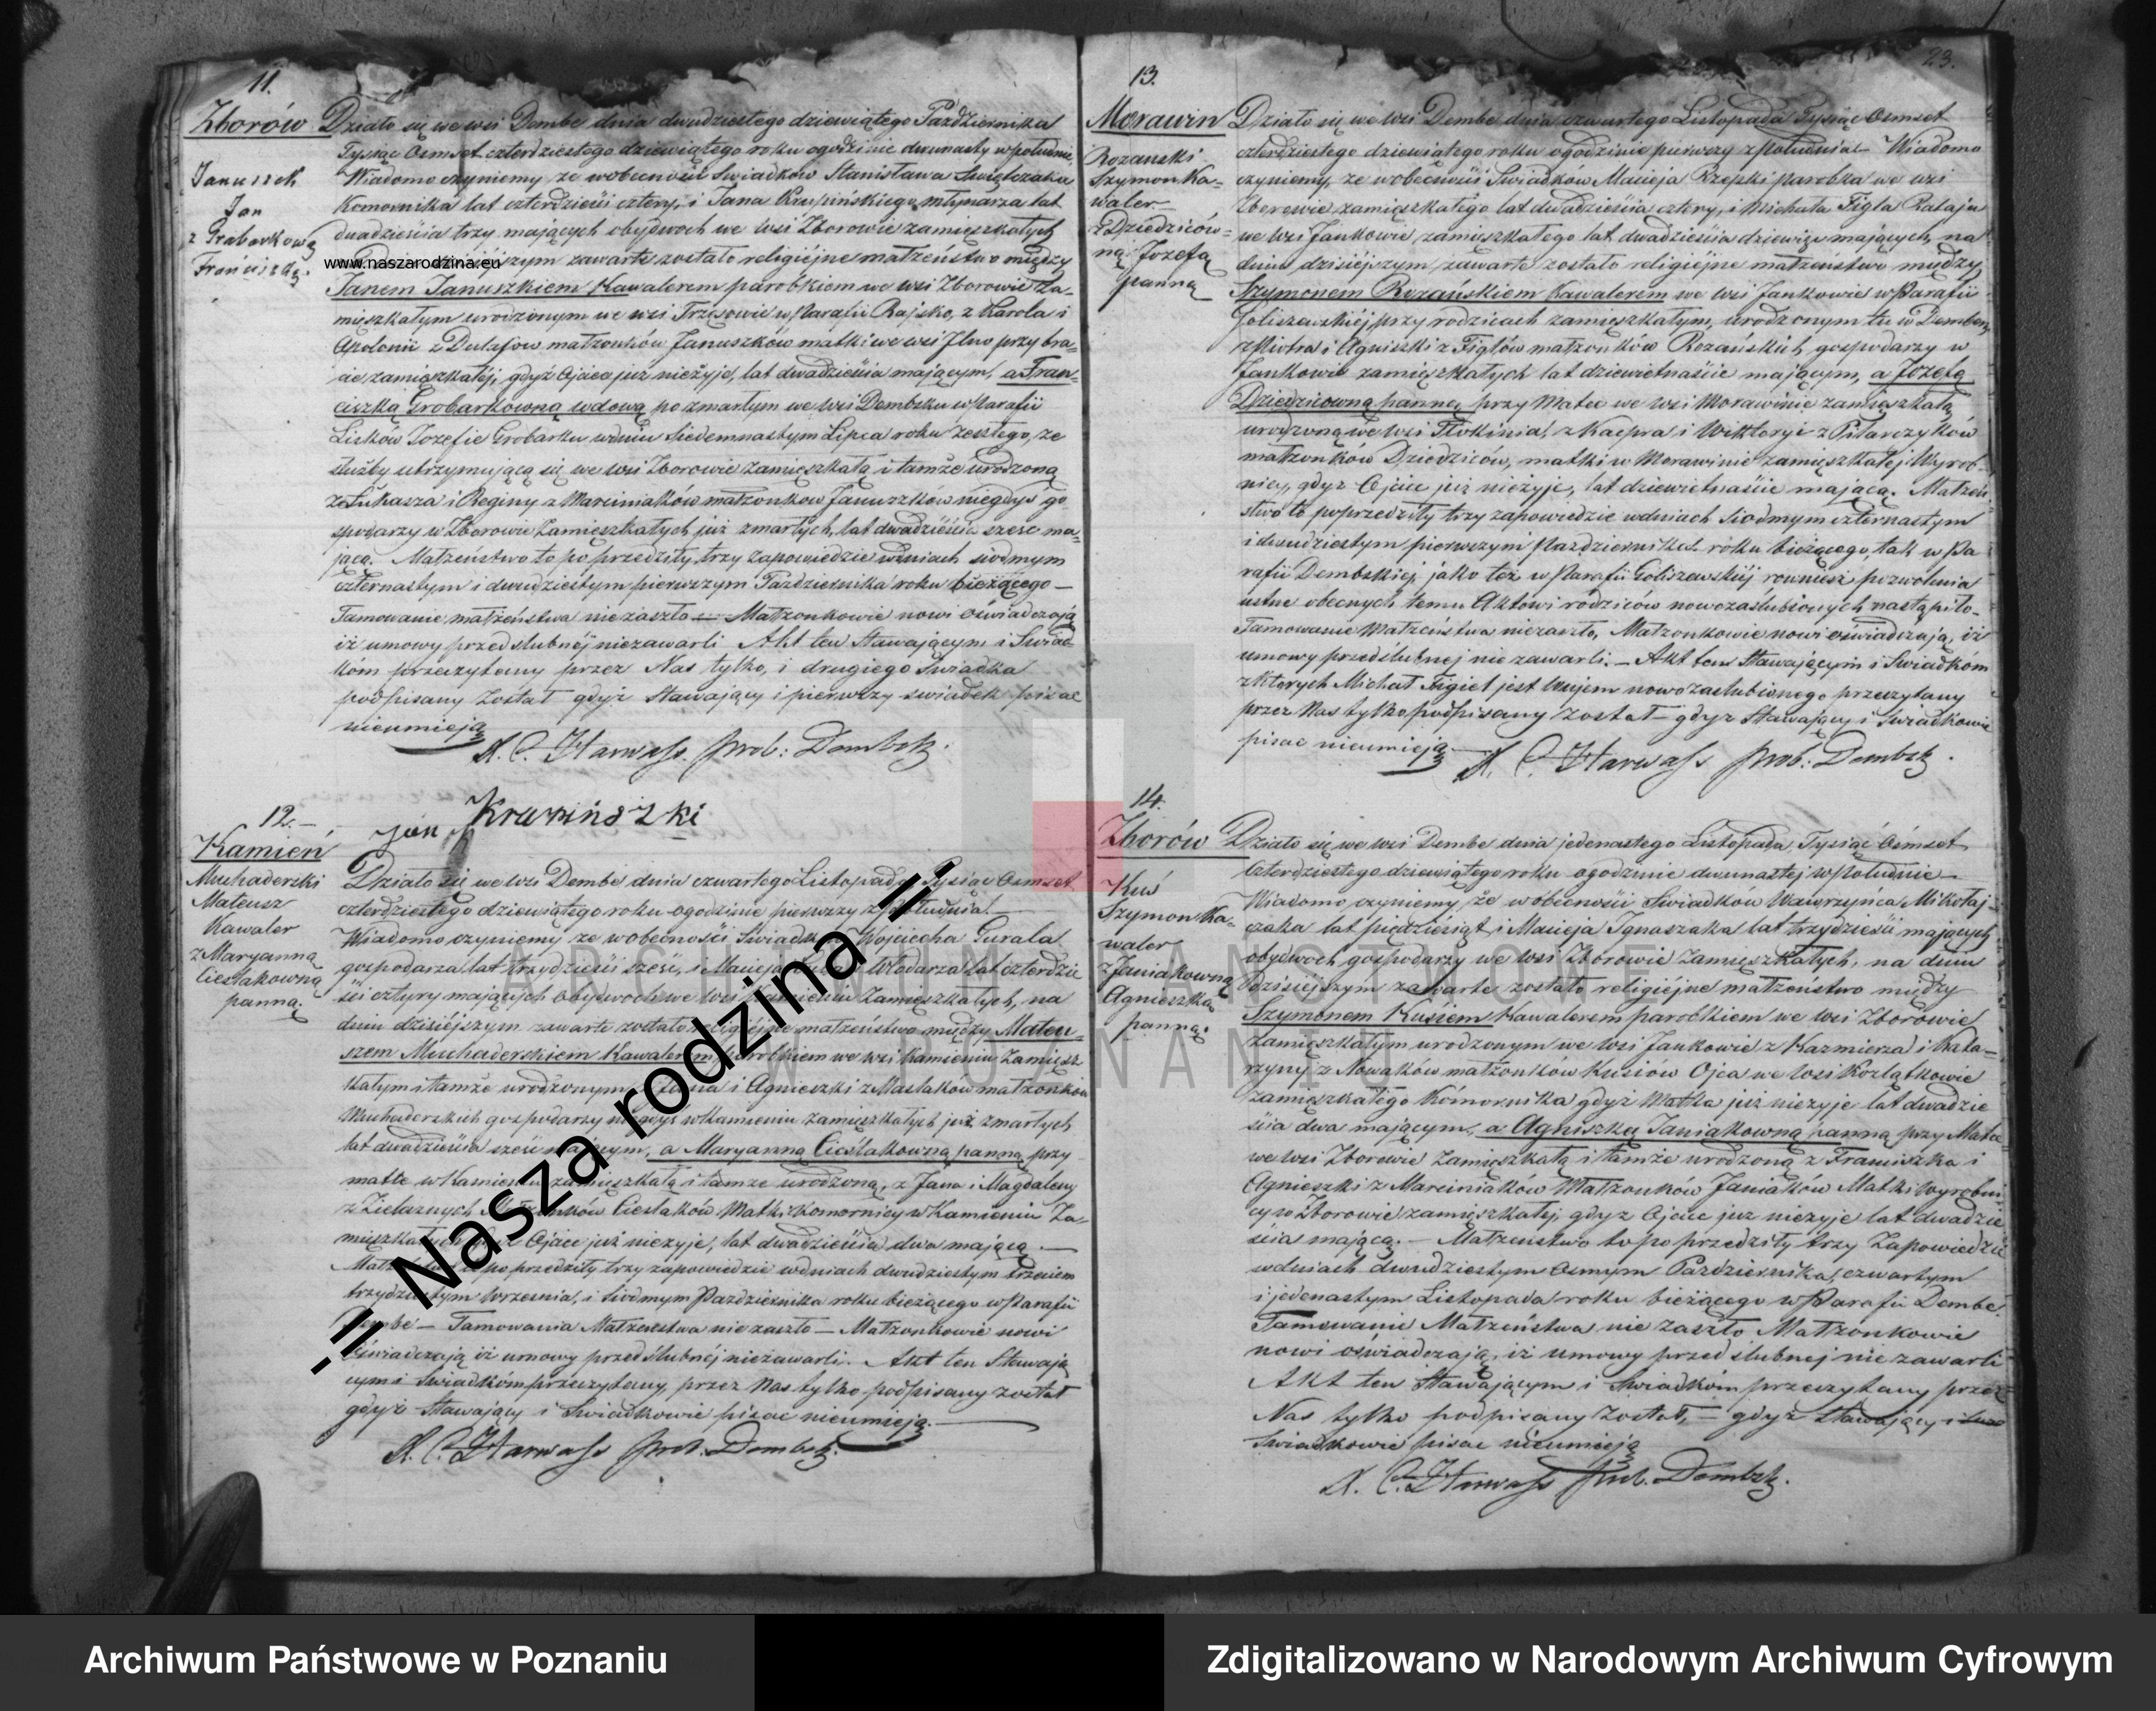 11.
Zborów
Januszek
Jan
z Grabarkową
Franciszką.
Działo się we wsi Dembe dnia dwudziestego dziewiątego Października
Tysiąc Osmset czterdziestego dziewiątego roku ogodzinie dwunasty wpołudnie,
Wiadomo czyniemy ze wobecności Swiadków Stanisława Swiętczaka
Komornika lat czterdzieści cztery, i Jana Krupińskiego młynarza lat
dwadzieścia trzy mających obydwoch we wsi Zborowie zamięszkałych
www.naszarodzina.eu
zawarte zostało religiéjne małżeństwo między
Janem Januszkiem Kawalerem parobkiem we wsi Zborowie Za-
mięszkałym urodzonym we wsi Trzęsowie w Parafii Rajsko, z Karola i
Apolonii z Dulasow małżonków Januszków matki we wsi Ilno przy bra-
cie zamięszkałej, gdyż Ojciec juz nieżyje, lat dwadzieścia mającym, a Fran-
ciszką Grobarkowną wdową po zmarłym we wsi Dembsku w Parafii
Lisków Jozefie Grobarku wdniu Siedemnastym Lipca roku zeszłego, ze
służby utrzymującą się, we wsi Zborowie zamięszkałą i tamże urodzoną
ze Łukasza i Reginy z Marciniaków małżonkow Januszków niegdyś go
spodarzy w Zborowie Zamięszkałych już zmarłych, lat dwadzieścia szesc ma-
jącą. Małżeństwo to po przedziły trzy zapowiedzie wdniach siodmym
czternastym i dwudziestym pierwszym Października roku bieżącego —
Tamowanie małżeństwa nie zaszło — Małżonkowie nowi Oświadczają
iż umowy przedslubnéj niezawarli Akt ten Stawającym i Swiad-
kóm przeczytany przez Nas tylko, i drugiego Swiadka
podpisany Został gdyż Stawający i pierwszy swiadek pisac
nieumieją
X. C. Harwass. prob: Dembsk.
Jan Krupińszki
12. —
Kamień
Muchaderski
Mateusz
Kawaler
z Maryanną
Cieslakowną
panną.
Działo się we wsi Dembe dnia czwartego Listopada Tysiąc Osmset
czterdziestego dziewiątego roku ogodzinie pierwszy z południa. —
Wiadomo czyniemy ze wobecności Swiadków Wojciecha Gurala
gospodarza lat trzydzieści szesc, i Macieja Włodarza lat czterdzie
ści cztyry mających obydwoch we wsi Kamieniu Zamięszkałych, na
dniu dzisiéjszym zawarte zostało religiéjne małżeństwo między Mateu-
szem Muchaderskiem Kawalerem parobkiem we wsi Kamieniu Zamięsz
kałym i tamże urodzonym z Jana i Agnieszki z Maslaków małżonków
Muchaderskich gospodarzy niegdyś w Kamieniu zamięszkałych już zmarłych
lat dwadzieścia sześc mającym, a Maryanną Cieślakowną panną przy
matce w Kamieniu zamięszkałą i tamże urodzoną, z Jana i Magdaleny
z Zielaznych Małżonków Cieslaków Matki Komornicy w Kamieniu Za-
mięszkałych gdyż Ojciec już nieżyje, lat dwadzieścia dwa mającą. —
Małżeństwo to po przedziły trzy zapowiedzie wdniach dwudziestym trzeciem
trzydziestym Wrzesnia, i Siodmym Pazdziernika roku bieżącego w Parafii
Dembe — Tamowania Małżeństwa nie zaszło — Małżonkowie nowi
Oświadczają iż umowy przedślubnéj niezawarli. Akt ten Stawają
cym i Swiadkóm przeczytany, przez Nas tylko podpisany został
gdyż Stawający i Swiadkowie pisac nieumieją. —
X. C. Harwass prob. Dembsk.
23.
13.
Morawin
Rozanski
Szymon Ka-
waler
z Dziedziców-
ną Jozefą
panną
Działo się we wsi Dembe dnia czwartego Listopada Tysiąc Osmset
czterdziestego dziewiątego roku ogodzinie pierwszy z południa — Wiadomo
czyniemy, ze wobecności Swiadkow Macieja Rzepki parobka we wsi
Zborowie zamięszkałego lat dwadzieścia cztery, i Michała Figla Rataja
we wsi Jankowie zamięszkałego lat dwadzieścia dziewięc mających, na
dniu dzisiéjszym zawarte zostało religiéjne małżeństwo między
Szymonem Rozańskiem Kawalerem we wsi Jankowie w Parafii
Goliszewskiéj przy rodzicach zamięszkałym, urodzonym tu w Dembem
z Piotra i Agnieszki z Figlów małżonków Rozańskich gospodarzy w
Jankowie zamięszkałych lat dziewietnaście mającym, a Józefą
Dziedzicowną panną, przy Matce we wsi Morawinie zamięszkałą
urodzoną we wsi Tłokinia, z Kacpra i Wiktoryi z Pitarczyków
małżonków Dziedziców, matki w Morawinie zamięszkałej Wyrob-
nicy, gdyż Ojciec już nieżyje, lat dziewietnaście mającą. Małżeń
stwo to poprzedziły trzy zapowiedzie wdniach Siodmym czternastym
i dwudziestym pierwszym Października roku bieżącego, tak w Pa
rafii Dembskiej jako też w Parafii Goliszewskiéj rownież pozwolenia
ustne obecnych temu Aktowi rodziców nowozaślubionych nastąpiło —
Tamowanie Małżeństwa niezaszło, Małżonkowie nowi oświadczają, iż
umowy przedślubnej nie zawarli. — Akt ten Stawającym i Swiadkóm
z ktorych Michał Figiel jest Wujem nowozaslubionego przeczytany
przez Nas tylko podpisany został — gdyz Stawający i Swiadkowie
pisac nieumieją —
X. C. Harwass prob: Dembsk.
14.
Zborów
Kuś
Szymon Ka-
waler
z Janiakowną
Agnieszką
panną.
Działo się we wsi Dembe dnia jedenastego Listopada Tysiąc Ośmset
Czterdziestego dziewiątego roku ogodzinie dwunastej w Południe —
Wiadomo czyniemy że w obecności Swiadków Wawrzyńca Mikołaj-
czaka lat pięcdziesiąt i Macieja Ignaszaka lat trzydzieści mających
obydwoch gospodarzy we wsi Zborowie Zamięszkałych, na dniu
Dzisiéjszym zawarte zostało religiéjne małżenstwo między
Szymonem Kusiem Kawalerem parobkiem we wsi Zborowie
Zamięszkałym urodzonym we wsi Jankowie z Kazmierza i Kata-
rzyny z Nowaków małżonków Kusiów Ojca we wsi Kozlątkowie
zamięszkałego Kómornika gdyż Matka już nieżyje lat dwadzie
ścia dwa mającym, a Agniszką Janiakowną panną przy Matce
we wsi Zborowie Zamięszkałą i tamże urodzoną z Franciszka i
Agnieszki z Marciniaków Małżonków Janiaków Matki Wyrobni
cy w Zborowie zamięszkałej, gdyż Ojciec juz nieżyje lat dwadzie
ścia mającą. — Małżeństwo to po przedziły trzy Zapowiedzie
wdniach dwudziestym osmym Pazdziernika, czwartym
i jedenastym Listopada roku bieżącego w Parafii Dembe
Tamowanie Małżeństwa nie zaszło Małżonkowie
nowi oświadczają, iż umowy przed slubnej nie zawarli
Akt ten Stawającym i Swiadkóm przeczytany przez
Nas tylko podpisany Został, — gdyż Stawający i
Swiadkowie pisac nieumieją
X. C. Harwass prob. Dembsk.
.:: Nasza rodzina ::.
ARCHIWUM PAŃSTWOWE
W POZNANIU
Archiwum Państwowe w Poznaniu
Zdigitalizowano w Narodowym Archiwum Cyfrowym